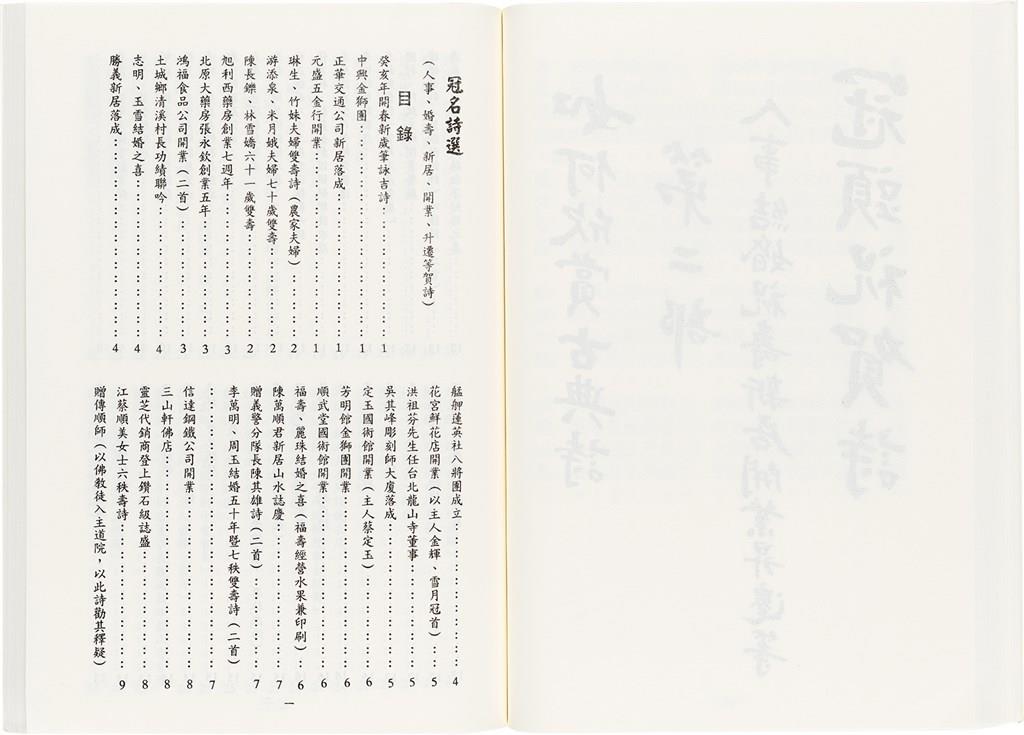 冠名詩選
目錄
(人事、婚壽、新居、開業、升遷等賀詩)
癸亥年開春新歲筆詠吉詩……………1
中興金獅團……………1
正華交通公司新居落成……………1
元盛五金行開業……………1
琳生、竹妹夫婦雙壽詩(農家夫婦)……………2
游添泉、米月娥夫婦七十歲雙壽……………2
陳長鑠、林雪嬌六十一歲雙壽……………2
旭利西藥房創業七週年……………3
北原大藥房張永欽創業五年……………3
鴻福食品公司開業(二首)……………3
土城鄉清溪村長功績聯吟……………4
志明、玉雪結婚之喜……………4
勝義新居落成……………4
艋舺蓮英社八將團成立……………4
花宮鮮花店開業(以主人金輝、雪月冠首)……5
洪祖芬先生任台北龍山寺董事……………5
吳其峰彫刻師大廈落成……………5
定玉國術館開業(主人蔡定玉)……………6
芳明館金獅團開業……………6
順武堂國術館開業……………6
福壽、麗珠結婚之喜(福壽經營水果兼印刷)…6
陳萬順君新居山水誌慶……………7
贈義警分隊長陳其雄詩(二首)……………7
李萬明、周玉結婚五十年暨七秩雙壽詩(二首)
……………7
信達鋼鐵公司開業……………8
三山軒佛店……………8
靈芝代銷商登上鑽石級誌盛……………8
江蔡順美女士六秩壽詩……………9
贈傳順師(以佛教徒入主道院，以此詩勸其釋疑)
一
冠頭祝賀詩
人事結婚祝壽新居開業昇遷等
第二部
如何欣賞古典詩